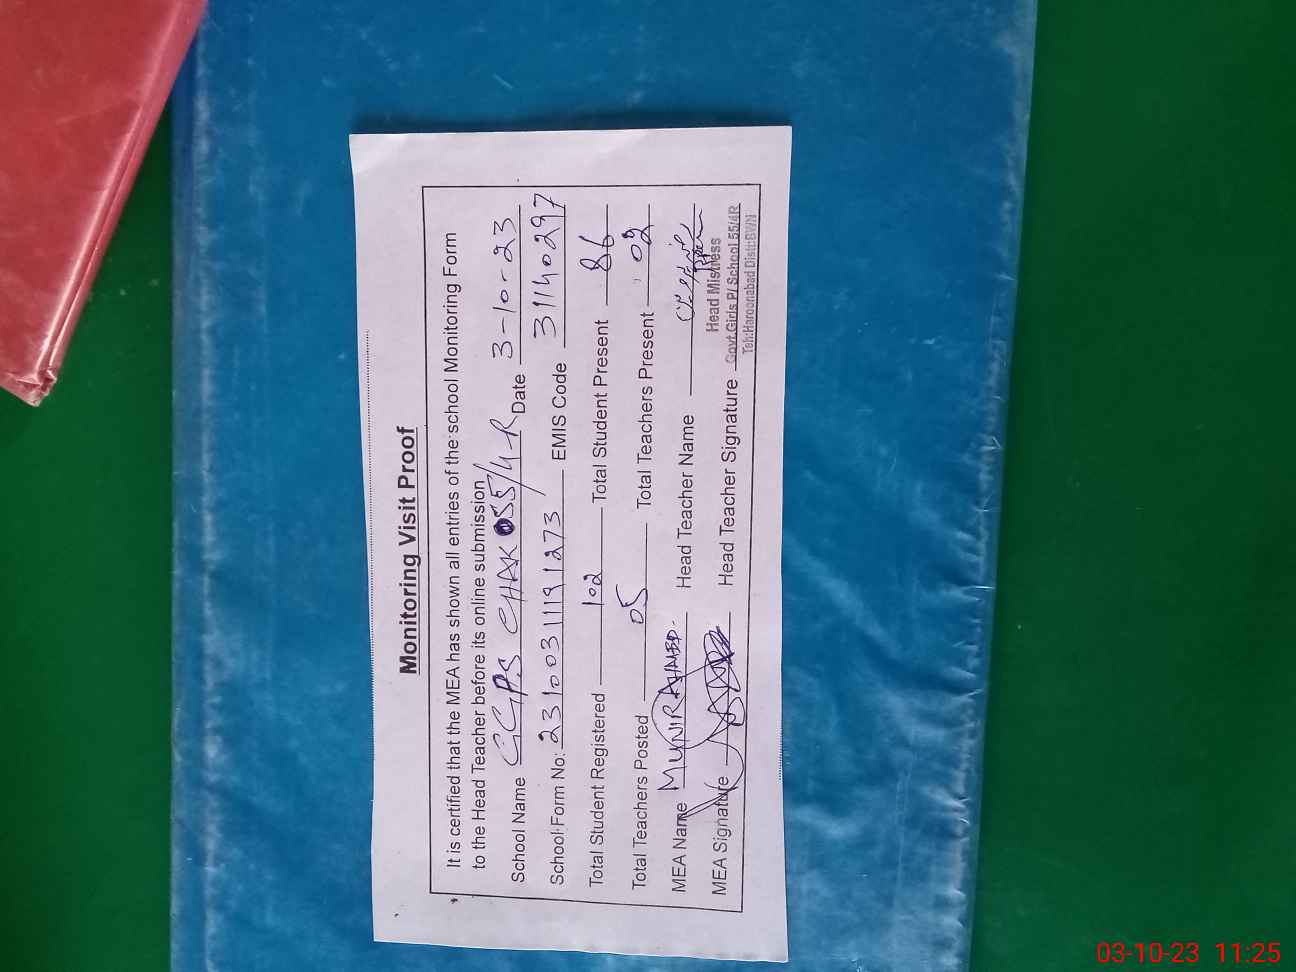 Monitoring Visit Proof
It is certified that the MEA has shown all entries of the school Monitoring Form
to the Head Teacher before its online submission
School Name GGPS CHAK 55/4-R Date 3-10-23
School Form No: 23100311191273 EMIS Code 31140297
Total Student Registered 102 Total Student Present 86
Total Teachers Posted 05 Total Teachers Present 02
MEA Name MUNIR AHMED. Head Teacher Name
MEA Signature Head Teacher Signature
Head Mistress
Govt.Girls P/ School 55/4R
Teh:Haroonabad Distt:BWN
03-10-23 11:25